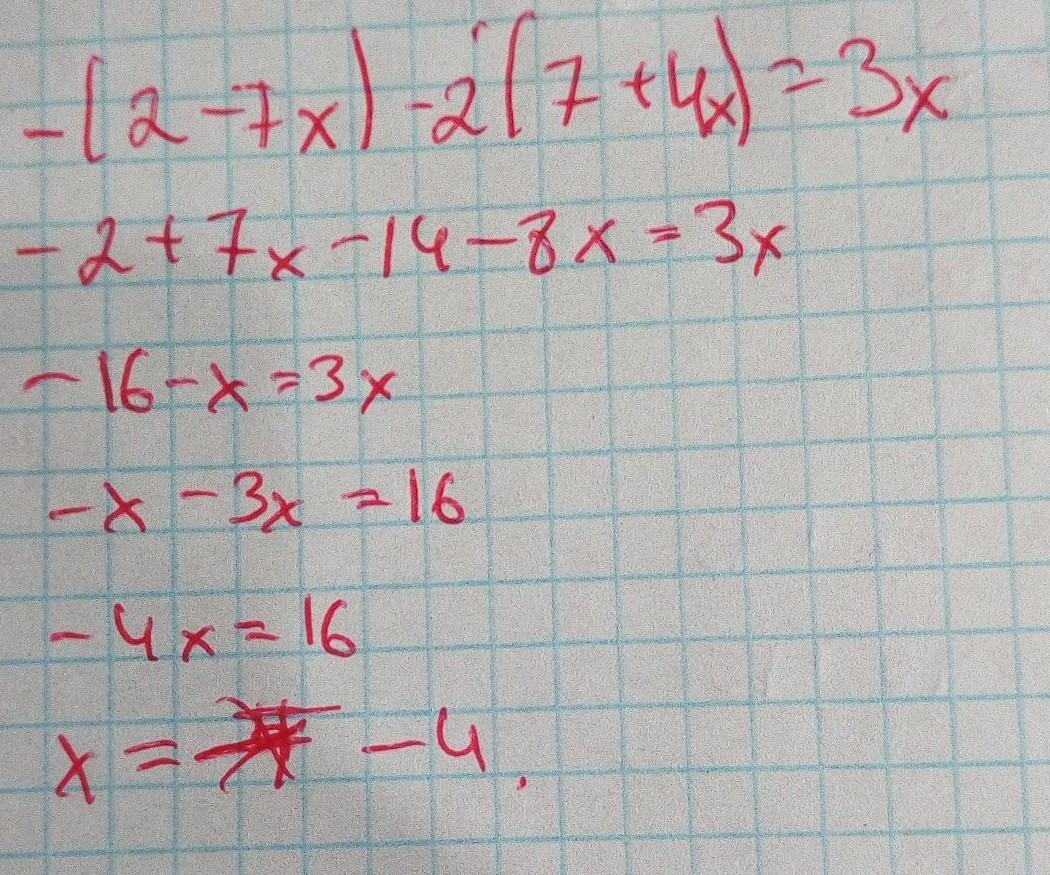 -(2-7x)-2(7+4x)=3x
-2+7x-14-8x=3x
-16-x=3x
-x-3x=16
-4x=16
x= -4.